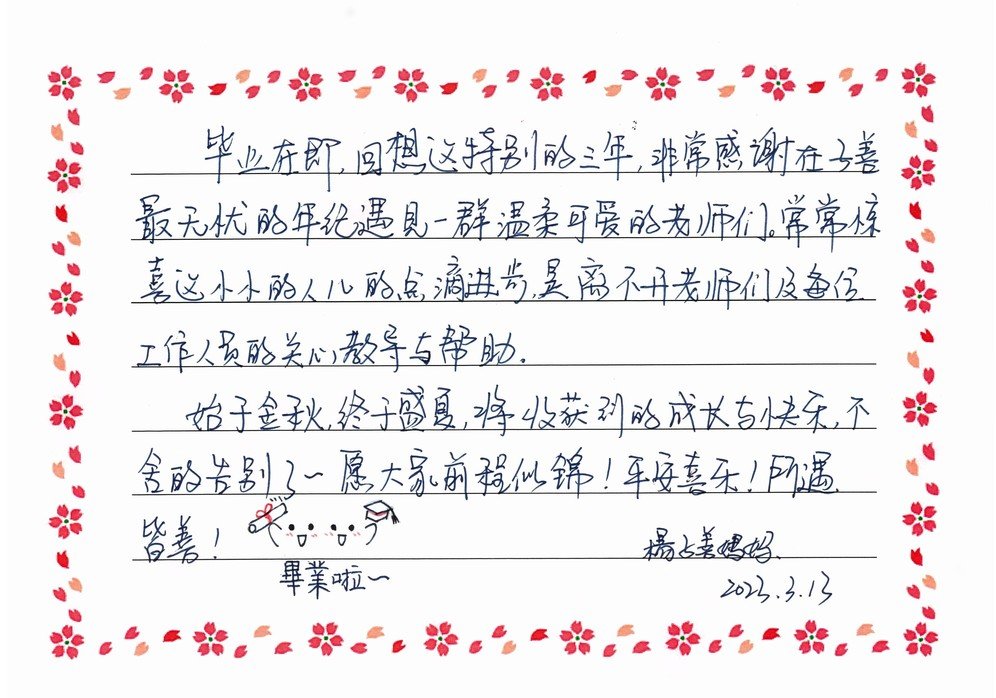 毕业在即,回想这特别的三年,非常感谢在子善
最无忧的年纪遇見一群温柔可爱的老师们。常常惊
喜这小小的人儿的点滴进步,是离不开老师们及各位
工作人员的关心教导与帮助.
始于金秋,终于盛夏,将收获到的成长与快乐,不
舍的告别了~愿大家前程似锦!平安喜乐!所遇
皆善!
畢業啦~
楊子善媽媽.
2023.3.13